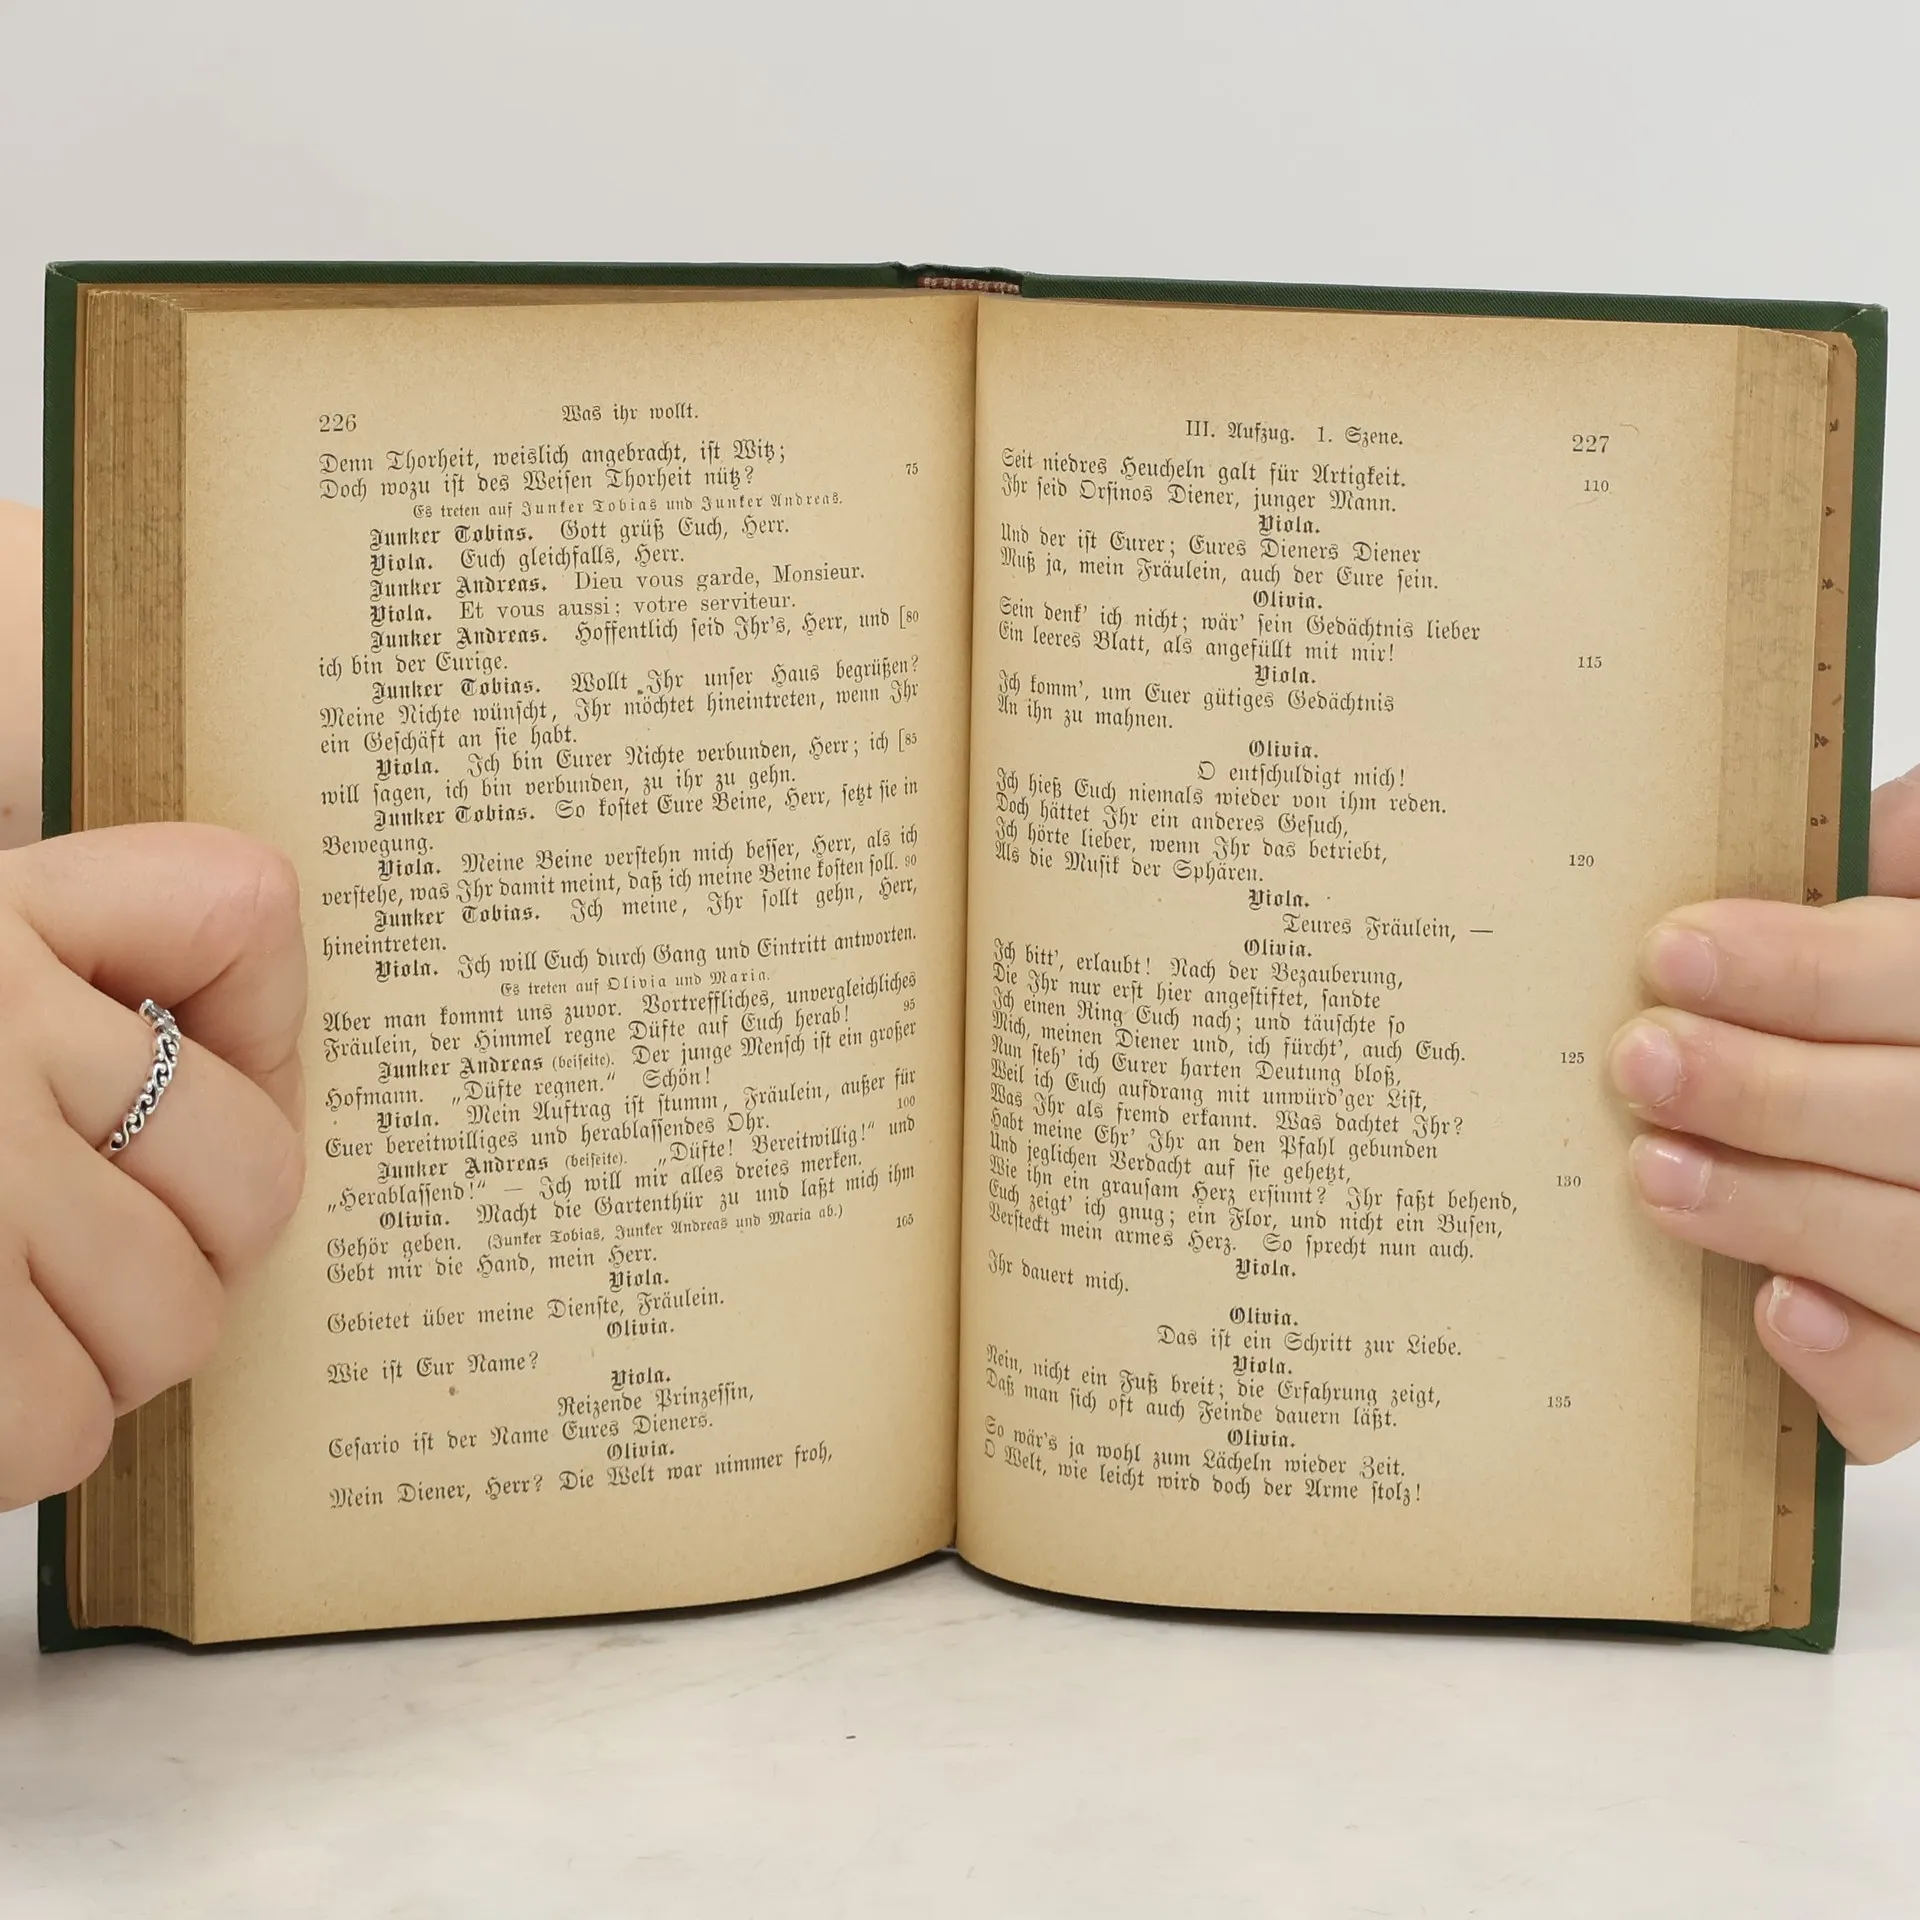 226
Was ihr wollt.
Denn Thorheit, weislich angebracht, ist Witz;
Doch wozu ist des Weisen Thorheit nütz? 75
Es treten auf Junker Tobias und Junker Andreas.
Junker Tobias. Gott grüß Euch, Herr.
Viola. Euch gleichfalls, Herr.
Junker Andreas. Dieu vous garde, Monsieur.
Viola. Et vous aussi; votre serviteur.
Junker Andreas. Hoffentlich seid Ihr's, Herr, und [80
ich bin der Eurige.
Junker Tobias. Wollt Ihr unser Haus begrüßen?
Meine Nichte wünscht, Ihr möchtet hineintreten, wenn Ihr
ein Geschäft an sie habt.
Viola. Ich bin Eurer Nichte verbunden, Herr; ich [85
will sagen, ich bin verbunden, zu ihr zu gehn.
Junker Tobias. So kostet Eure Beine, Herr, setzt sie in
Bewegung.
Viola. Meine Beine verstehn mich besser, Herr, als ich
verstehe, was Ihr damit meint, daß ich meine Beine kosten soll. 90
Junker Tobias. Ich meine, Ihr sollt gehn, Herr,
hineintreten.
Viola. Ich will Euch durch Gang und Eintritt antworten.
Es treten auf Olivia und Maria.
Aber man kommt uns zuvor. Vortreffliches, unvergleichliches
Fräulein, der Himmel regne Düfte auf Euch herab! 95
Junker Andreas (beiseite). Der junge Mensch ist ein großer
Hofmann. „Düfte regnen.“ Schön!
Viola. Mein Auftrag ist stumm, Fräulein, außer für
Euer bereitwilliges und herablassendes Ohr. 100
Junker Andreas (beiseite). „Düfte! Bereitwillig!“ und
„Herablassend!“ — Ich will mir alles dreies merken.
Olivia. Macht die Gartenthür zu und laßt mich ihm
Gehör geben. (Junker Tobias, Junker Andreas und Maria ab.) 105
Gebt mir die Hand, mein Herr.
Viola.
Gebietet über meine Dienste, Fräulein.
Olivia.
Wie ist Eur Name?
Viola.
Reizende Prinzessin,
Cesario ist der Name Eures Dieners.
Olivia.
Mein Diener, Herr? Die Welt war nimmer froh,
III. Aufzug. 1. Szene.
227
Seit niedres Heucheln galt für Artigkeit.
Ihr seid Orsinos Diener, junger Mann. 110
Viola.
Und der ist Eurer; Eures Dieners Diener
Muß ja, mein Fräulein, auch der Eure sein.
Olivia.
Sein denk' ich nicht; wär' sein Gedächtnis lieber
Ein leeres Blatt, als angefüllt mit mir!
Viola. 115
Ich komm', um Euer gütiges Gedächtnis
An ihn zu mahnen.
Olivia.
O entschuldigt mich!
Ich hieß Euch niemals wieder von ihm reden.
Doch hättet Ihr ein anderes Gesuch,
Ich hörte lieber, wenn Ihr das betriebt,
Als die Musik der Sphären. 120
Viola.
Teures Fräulein, —
Olivia.
Ich bitt', erlaubt! Nach der Bezauberung,
Die Ihr nur erst hier angestiftet, sandte
Ich einen Ring Euch nach; und täuschte so
Mich, meinen Diener und, ich fürcht', auch Euch.
Nun steh' ich Eurer harten Deutung bloß, 125
Weil ich Euch aufdrang mit unwürd'ger List,
Was Ihr als fremd erkannt. Was dachtet Ihr?
Habt meine Ehr' Ihr an den Pfahl gebunden
Und jeglichen Verdacht auf sie gehetzt,
Wie ihn ein grausam Herz ersinnt? Ihr faßt behend, 130
Euch zeigt' ich gnug; ein Flor, und nicht ein Busen,
Versteckt mein armes Herz. So sprecht nun auch.
Viola.
Ihr dauert mich.
Olivia.
Das ist ein Schritt zur Liebe.
Viola.
Nein, nicht ein Fuß breit; die Erfahrung zeigt,
Daß man sich oft auch Feinde dauern läßt. 135
Olivia.
So wär's ja wohl zum Lächeln wieder Zeit.
O Welt, wie leicht wird doch der Arme stolz!